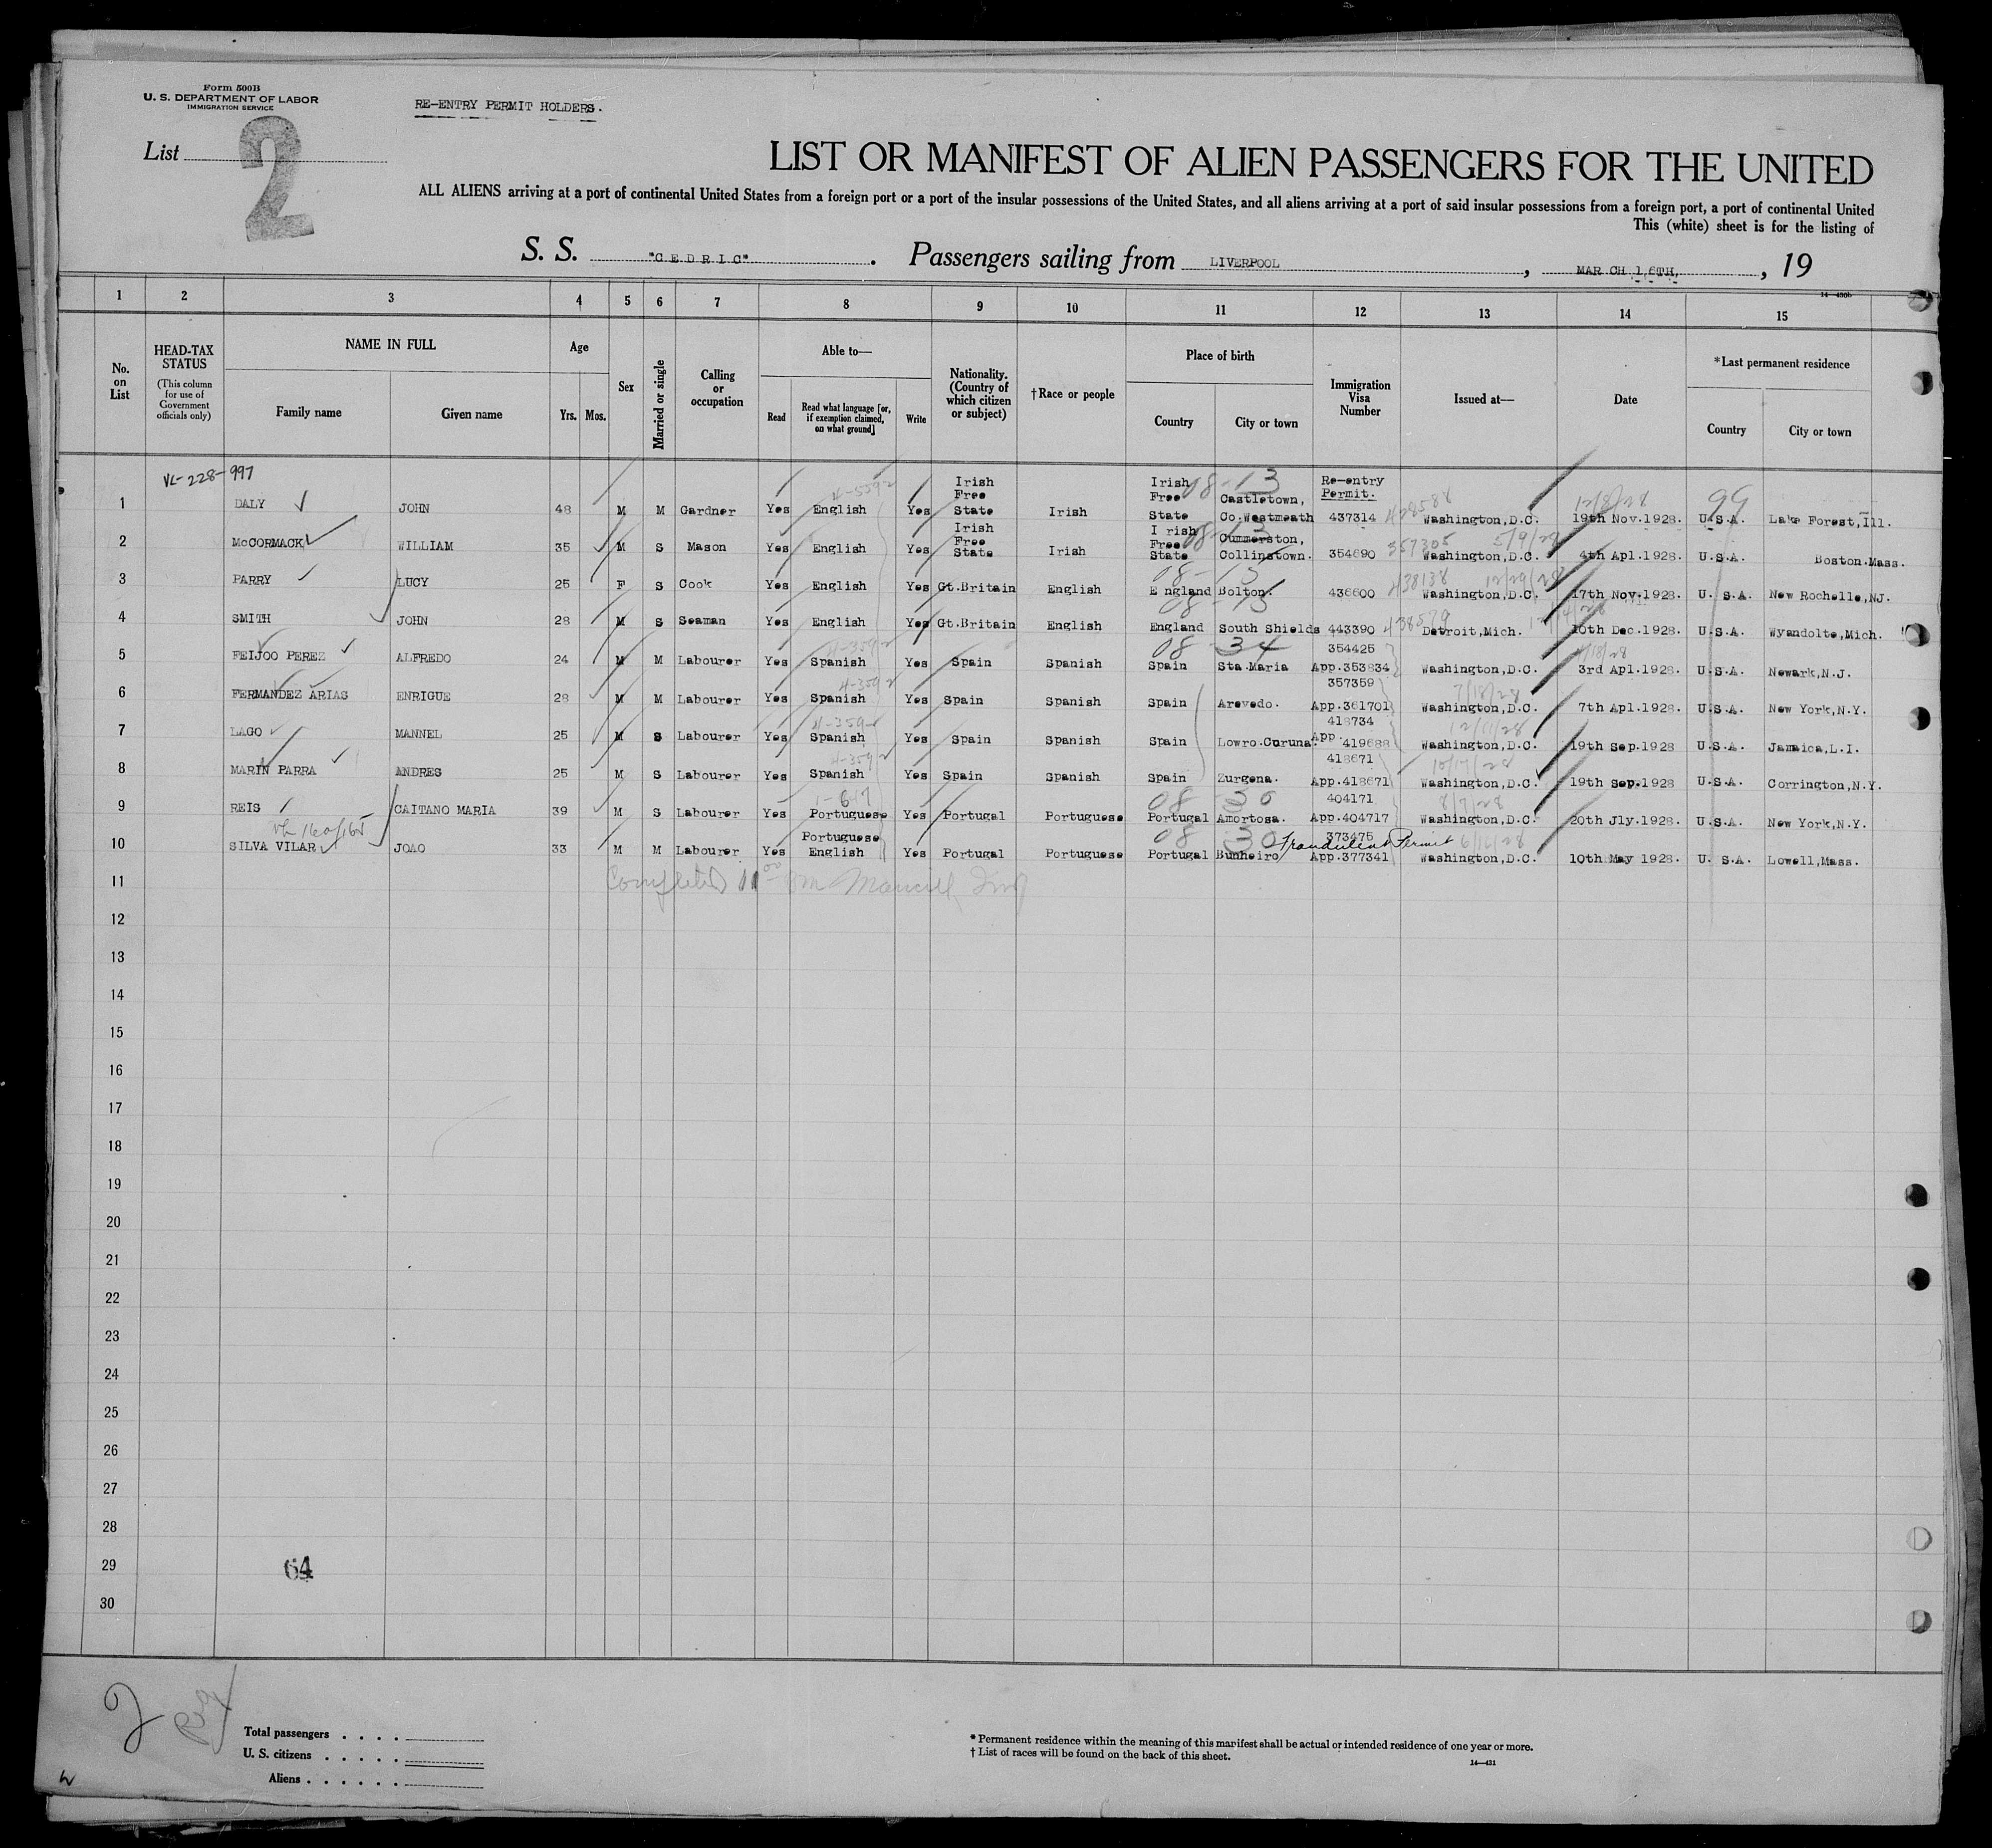 Form 500B
U. S. DEPARTMENT OF LABOR
IMMIGRATION SERVICE
RE-ENTRY PERMIT HOLDERS.
List 2
LIST OR MANIFEST OF ALIEN PASSENGERS FOR THE UNITED
ALL ALIENS arriving at a port of continental United States from a foreign port or a port of the insular possessions of the United States, and all aliens arriving at a port of said insular possessions from a foreign port, a port of continental United
This (white) sheet is for the listing of
S. S. "CEDRIC". Passengers sailing from LIVERPOOL, MARCH 16TH, , 19
14—430b
1 2 3 4 5 6 7 8 9 10 11 12 13 14 15
No. on List
HEAD-TAX STATUS
(This column for use of Government officials only)
NAME IN FULL
Family name Given name
Age
Yrs. Mos.
Sex
Married or single
Calling or occupation
Able to—
Read
Read what language [or, if exemption claimed, on what ground]
Write
Nationality. (Country of which citizen or subject)
†Race or people
Place of birth
Country City or town
Immigration Visa Number
Issued at—
Date
*Last permanent residence
Country City or town
VL-228-997
Re-entry Permit.
1 DALY JOHN 48 M M Gardner Yes English Yes Irish Free State Irish Irish Free State Castletown, Co.Westmeath 437314 Washington,D.C. 19th Nov.1928. U.S.A. Lake Forest,Ill.
2 McCORMACK WILLIAM 35 M S Mason Yes English Yes Irish Free State Irish I rish Free State Cummerston, Collinstown. 354690 Washington,D.C. 4th Apl.1928. U.S.A. Boston.Mass.
3 PARRY LUCY 25 F S Cook Yes English Yes Gt.Britain English E ngland Bolton. 436600 Washington,D.C. 17th Nov.1928. U. S.A. New Rochelle,NJ.
4 SMITH JOHN 28 M S Seaman Yes English Yes Gt.Britain English England South Shields 443390 Detroit,Mich. 10th Dec.1928. U.S.A. Wyandolte,Mich.
5 FEIJOO PEREZ ALFREDO 24 M M Labourer Yes Spanish Yes Spain Spanish Spain Sta.Maria 354425 App.353834 Washington,D.C. 3rd Apl.1928. U.S.A. Newark,N.J.
6 FERMANDEZ ARIAS ENRIGUE 28 M M Labourer Yes Spanish Yes Spain Spanish Spain Arevedo. 357359 App.361701 Washington,D.C. 7th Apl.1928. U.S.A. New York,N.Y.
7 LAGO MANNEL 25 M S Labourer Yes Spanish Yes Spain Spanish Spain Lowro.Coruna. 418734 App. 419688 Washington,D.C. 19th Sep.1928 U.S.A. Jamaica,L.I.
8 MARIN PARRA ANDRES 25 M S Labourer Yes Spanish Yes Spain Spanish Spain Zurgena. 418671 App.418671 Washington,D.C. 19th Sep.1928 U.S.A. Corrington,N.Y.
9 REIS CAITANO MARIA 39 M S Labourer Yes Portuguese Yes Portugal Portuguese Portugal Amortosa. 404171 App.404717 Washington,D.C. 20th Jly.1928. U.S.A. New York,N.Y.
10 SILVA VILAR JOAO 33 M M Labourer Yes Portuguese English Yes Portugal Portuguese Portugal Bunheiro 373475 App.377341 Fraudulent Permit Washington,D.C. 10th May 1928. U. S.A. Lowell,Mass.
11 Completed
12
13
14
15
16
17
18
19
20
21
22
23
24
25
26
27
28
29 64
30
2
Total passengers
U. S. citizens
Aliens
* Permanent residence within the meaning of this manifest shall be actual or intended residence of one year or more.
† List of races will be found on the back of this sheet.
14—431